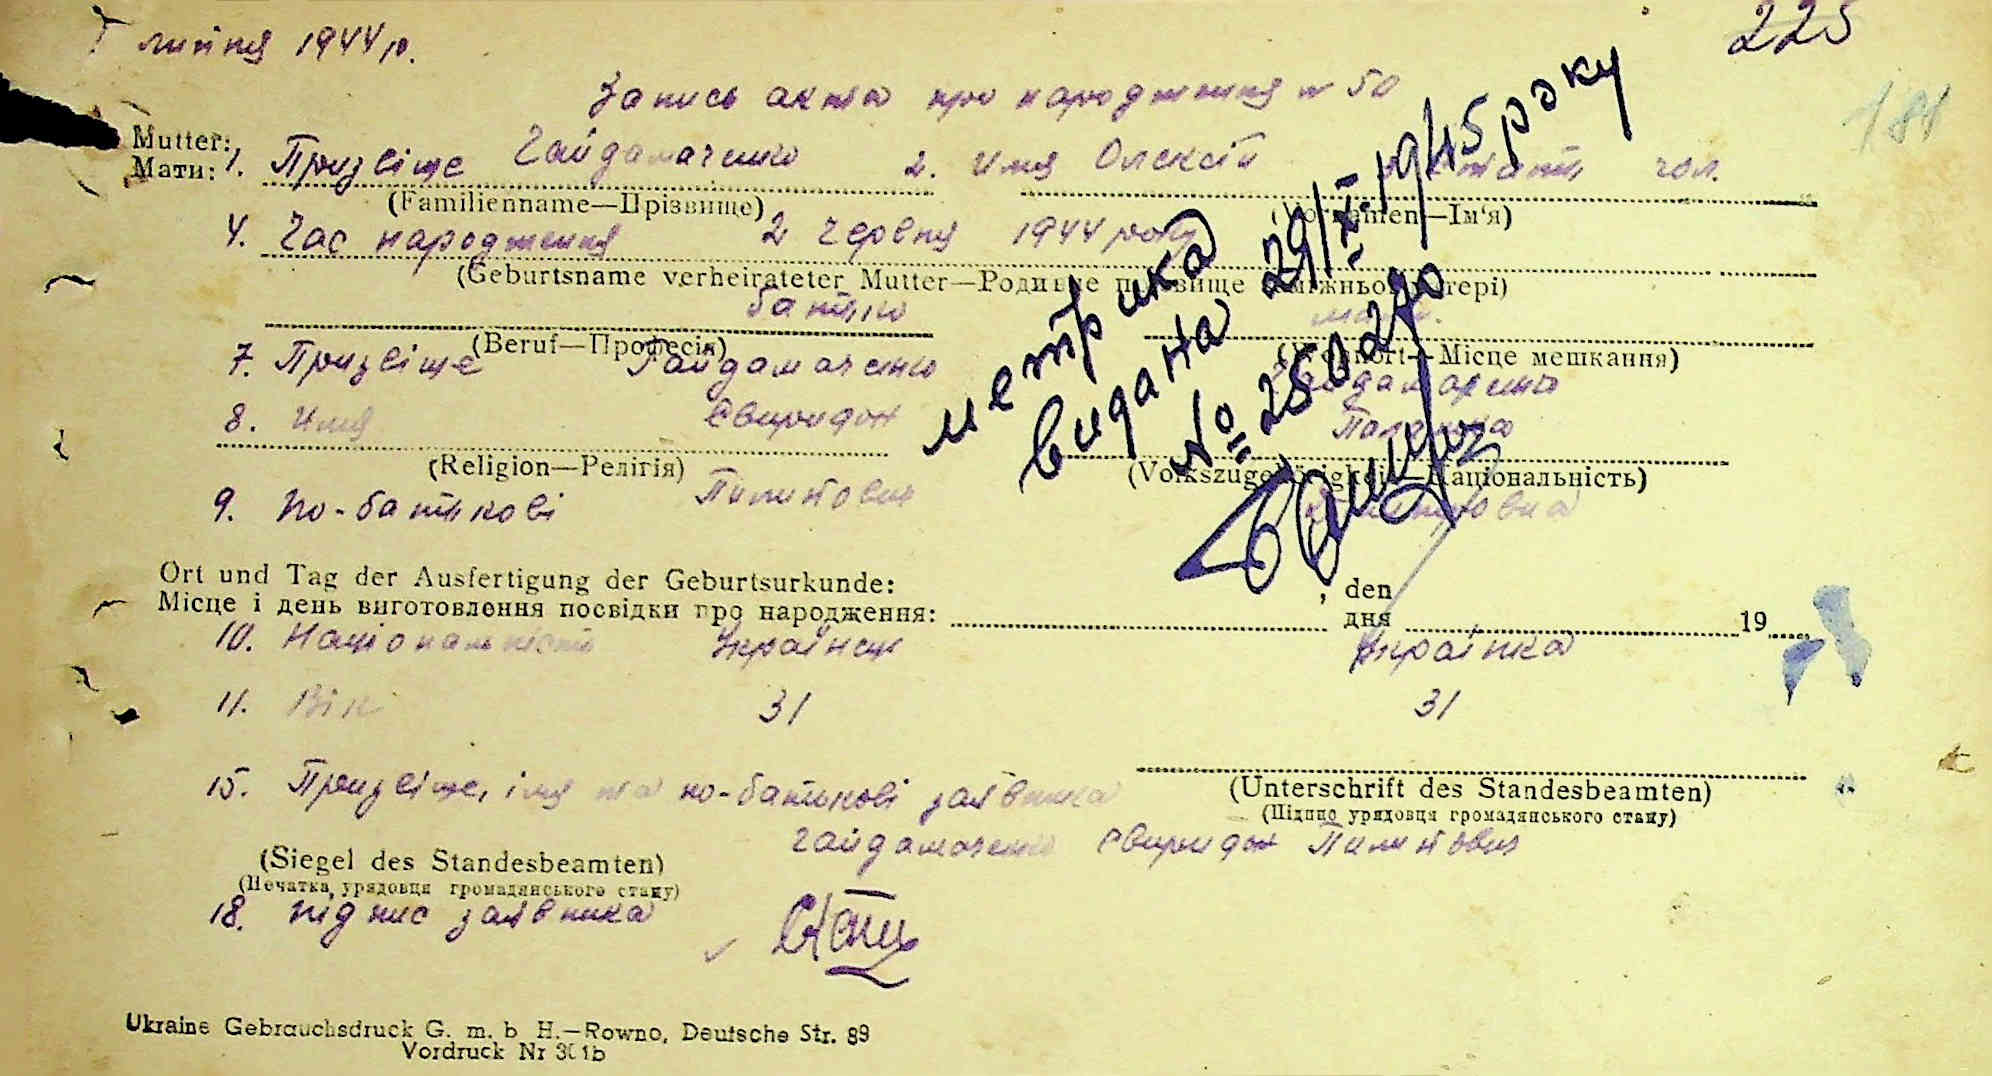 липня 1944 р. 225
Запись акта про народження № 50 181
Mutter:
Мати: 1. Призвіще Гайдамаченко 2. Имя Олексій стать чол.
(Familienname—Прізвище) (Vornamen—Ім'я)
4. Час народження 2 червня 1944 року
(Geburtsname verheirateter Mutter—Родинне прізвище заміжньої матері)
батько мати
(Beruf—Професія) (Wohnort—Місце мешкання)
7. Призвіще Гайдамаченко Гайдамаченко
8. Имя Свиридон
(Religion—Релігія) (Volkszugehörigkeit—Національність)
9. По-батькові Пилипович
метрика
видана 29/X-1945 року
№ 250270
Ort und Tag der Ausfertigung der Geburtsurkunde: , den
Місце і день виготовлення посвідки про народження: дня 19
10. Національність Українець Українка
11. Вік 31 31
15. Призвіще, імя та по-батькові заявника
(Unterschrift des Standesbeamten)
(Підпис урядовця громадянського стану)
Гайдамаченко Свиридон Пилипович
(Siegel des Standesbeamten)
(Печатка урядовця громадянського стану)
18. підпис заявника
Ukraine Gebrauchsdruck G. m. b H.—Rowno, Deutsche Str. 89
Vordruck Nr 301b